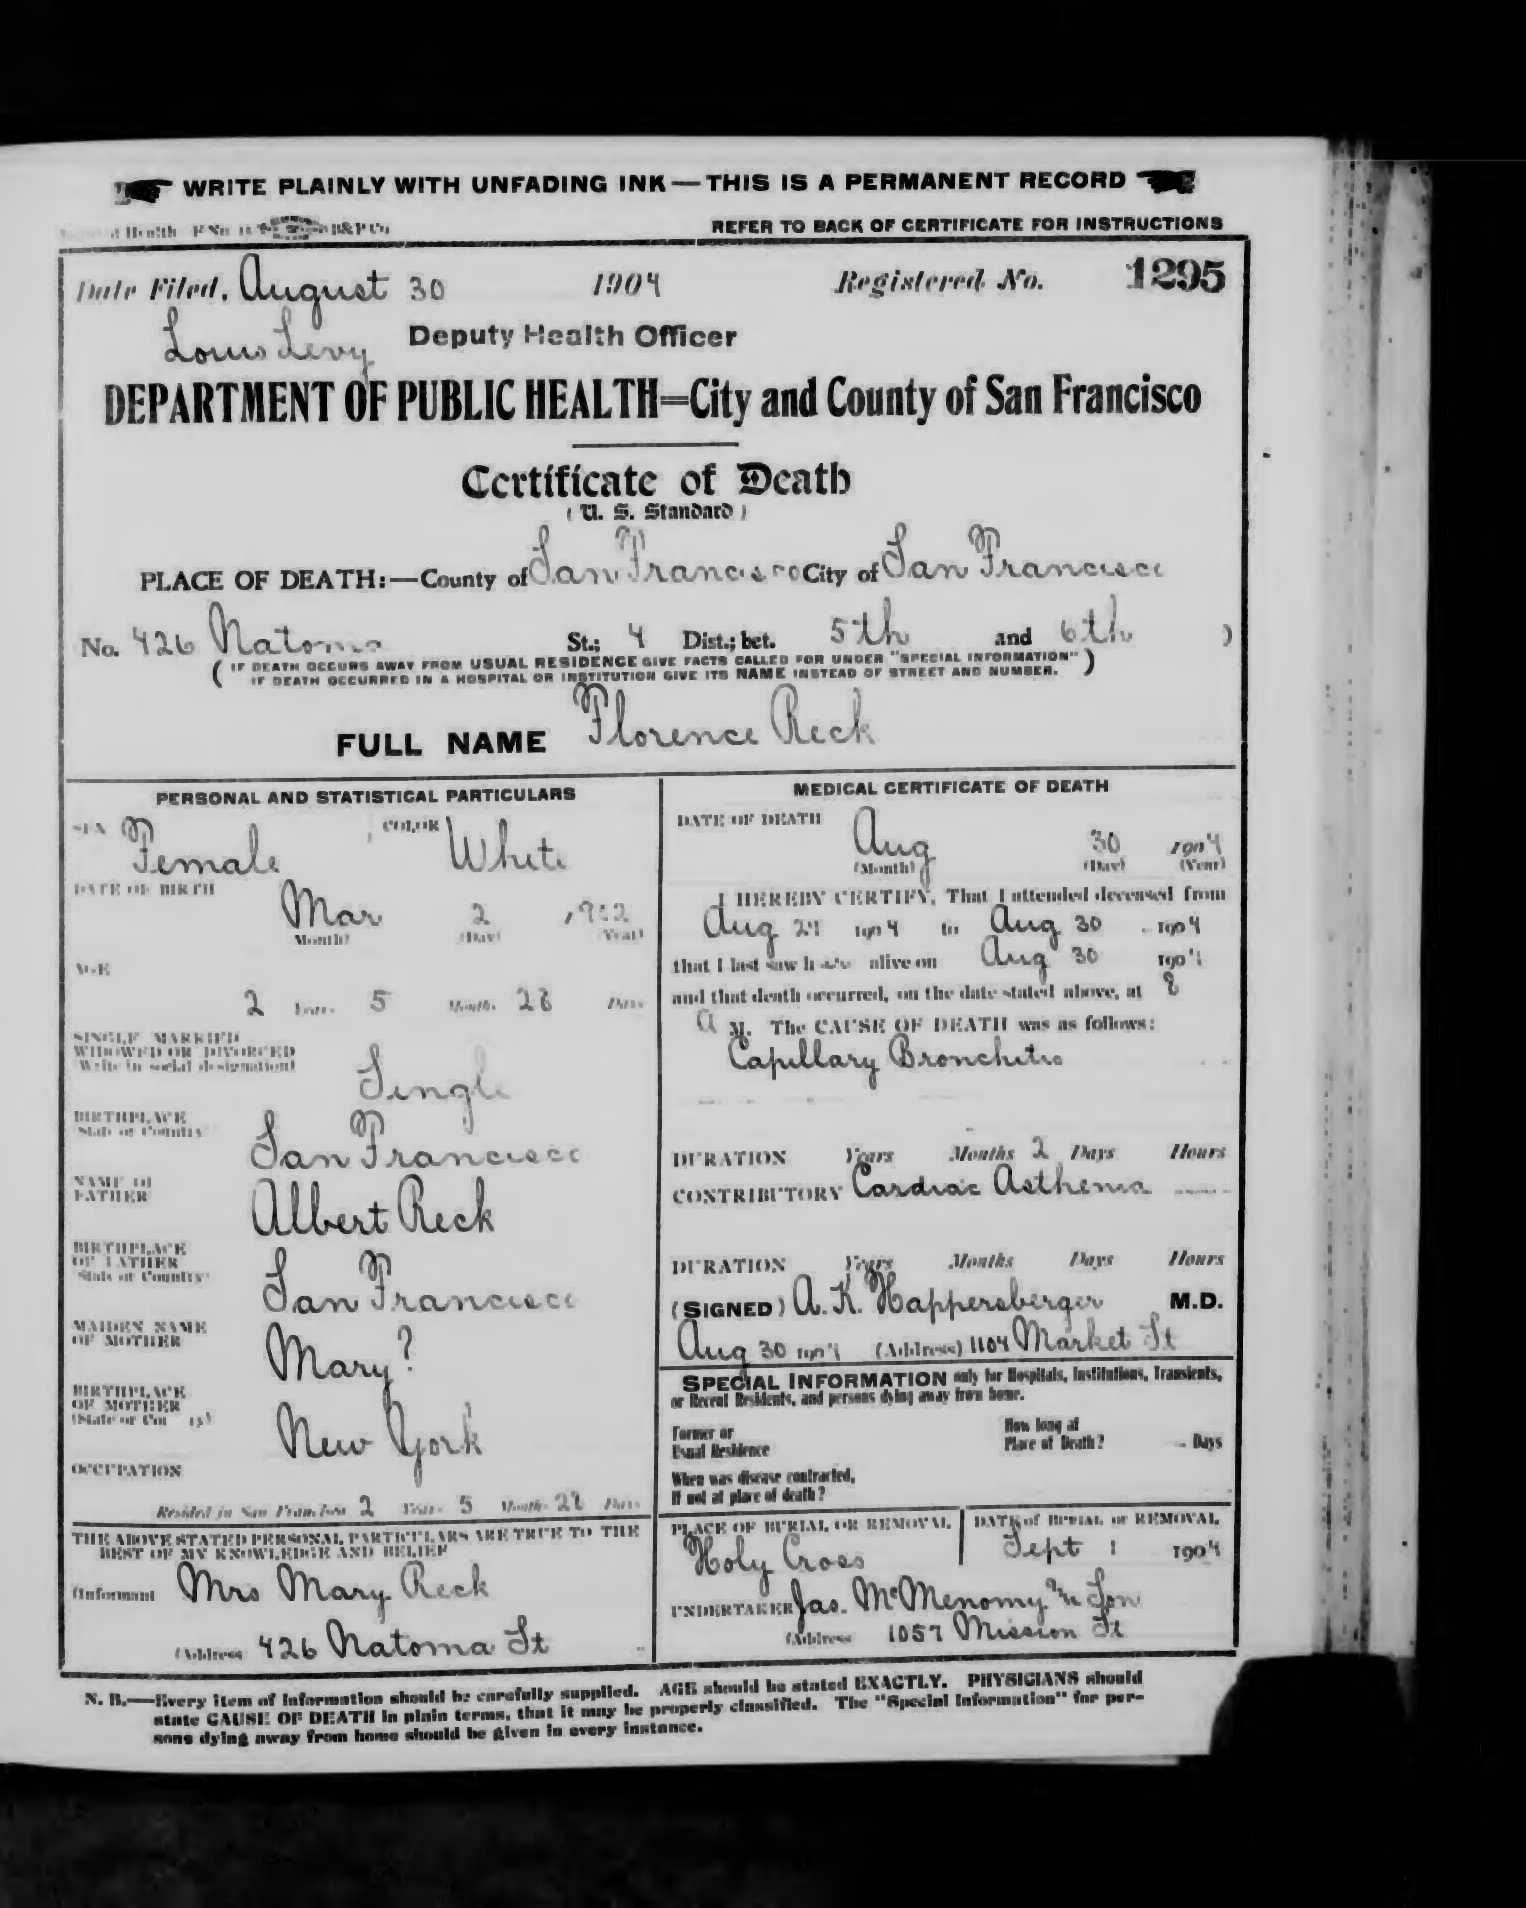 WRITE PLAINLY WITH UNFADING INK — THIS IS A PERMANENT RECORD
Health F No. B&P Co
REFER TO BACK OF CERTIFICATE FOR INSTRUCTIONS
Date Filed, August 30 1904 Registered No. 1295
Louis Levy Deputy Health Officer
DEPARTMENT OF PUBLIC HEALTH=City and County of San Francisco
Certificate of Death
(U. S. Standard)
PLACE OF DEATH:—County of San Francisco City of San Francisco
No. 426 Natoma St.; 4 Dist.; bet. 5th and 6th )
( IF DEATH OCCURS AWAY FROM USUAL RESIDENCE GIVE FACTS CALLED FOR UNDER "SPECIAL INFORMATION" )
IF DEATH OCCURRED IN A HOSPITAL OR INSTITUTION GIVE ITS NAME INSTEAD OF STREET AND NUMBER.
FULL NAME Florence Reck
PERSONAL AND STATISTICAL PARTICULARS
SEX Female COLOR White
DATE OF BIRTH
Mar 2 1902
(Month) (Day) (Year)
AGE
2 Years 5 Months 28 Days
SINGLE MARRIED
WIDOWED OR DIVORCED
(Write in social designation) Single
BIRTHPLACE
State or Country
San Francisco
NAME OF
FATHER Albert Reck
BIRTHPLACE
OF FATHER
State or Country San Francisco
MAIDEN NAME
OF MOTHER Mary ?
BIRTHPLACE
OF MOTHER
(State or Country) New York
OCCUPATION
Resided in San Francisco 2 Years 5 Months 28 Days
THE ABOVE STATED PERSONAL PARTICULARS ARE TRUE TO THE
BEST OF MY KNOWLEDGE AND BELIEF
(Informant Mrs Mary Reck
(Address 426 Natoma St
MEDICAL CERTIFICATE OF DEATH
DATE OF DEATH
Aug 30 1904
(Month) (Day) (Year)
I HEREBY CERTIFY, That I attended deceased from
Aug 1904 to Aug 30 1904
that I last saw h alive on Aug 30 1904
and that death occurred, on the date stated above, at 8
A M. The CAUSE OF DEATH was as follows:
Capillary Bronchitis
DURATION Years Months 2 Days Hours
CONTRIBUTORY Cardiac Asthenia
DURATION Years Months Days Hours
(SIGNED) A. K. Happersberger M.D.
Aug 30 1904 (Address) 1104 Market St
SPECIAL INFORMATION only for Hospitals, Institutions, Transients,
or Recent Residents, and persons dying away from home.
Former or
Usual Residence
How long at
Place of Death? Days
When was disease contracted,
If not at place of death?
PLACE OF BURIAL OR REMOVAL
Holy Cross
DATE of BURIAL or REMOVAL
Sept 1 1904
UNDERTAKER Jas. McMenomy & Son
(Address 1057 Mission St
N. B.—Every item of information should be carefully supplied. AGE should be stated EXACTLY. PHYSICIANS should
state CAUSE OF DEATH in plain terms, that it may be properly classified. The "Special Information" for per-
sons dying away from home should be given in every instance.